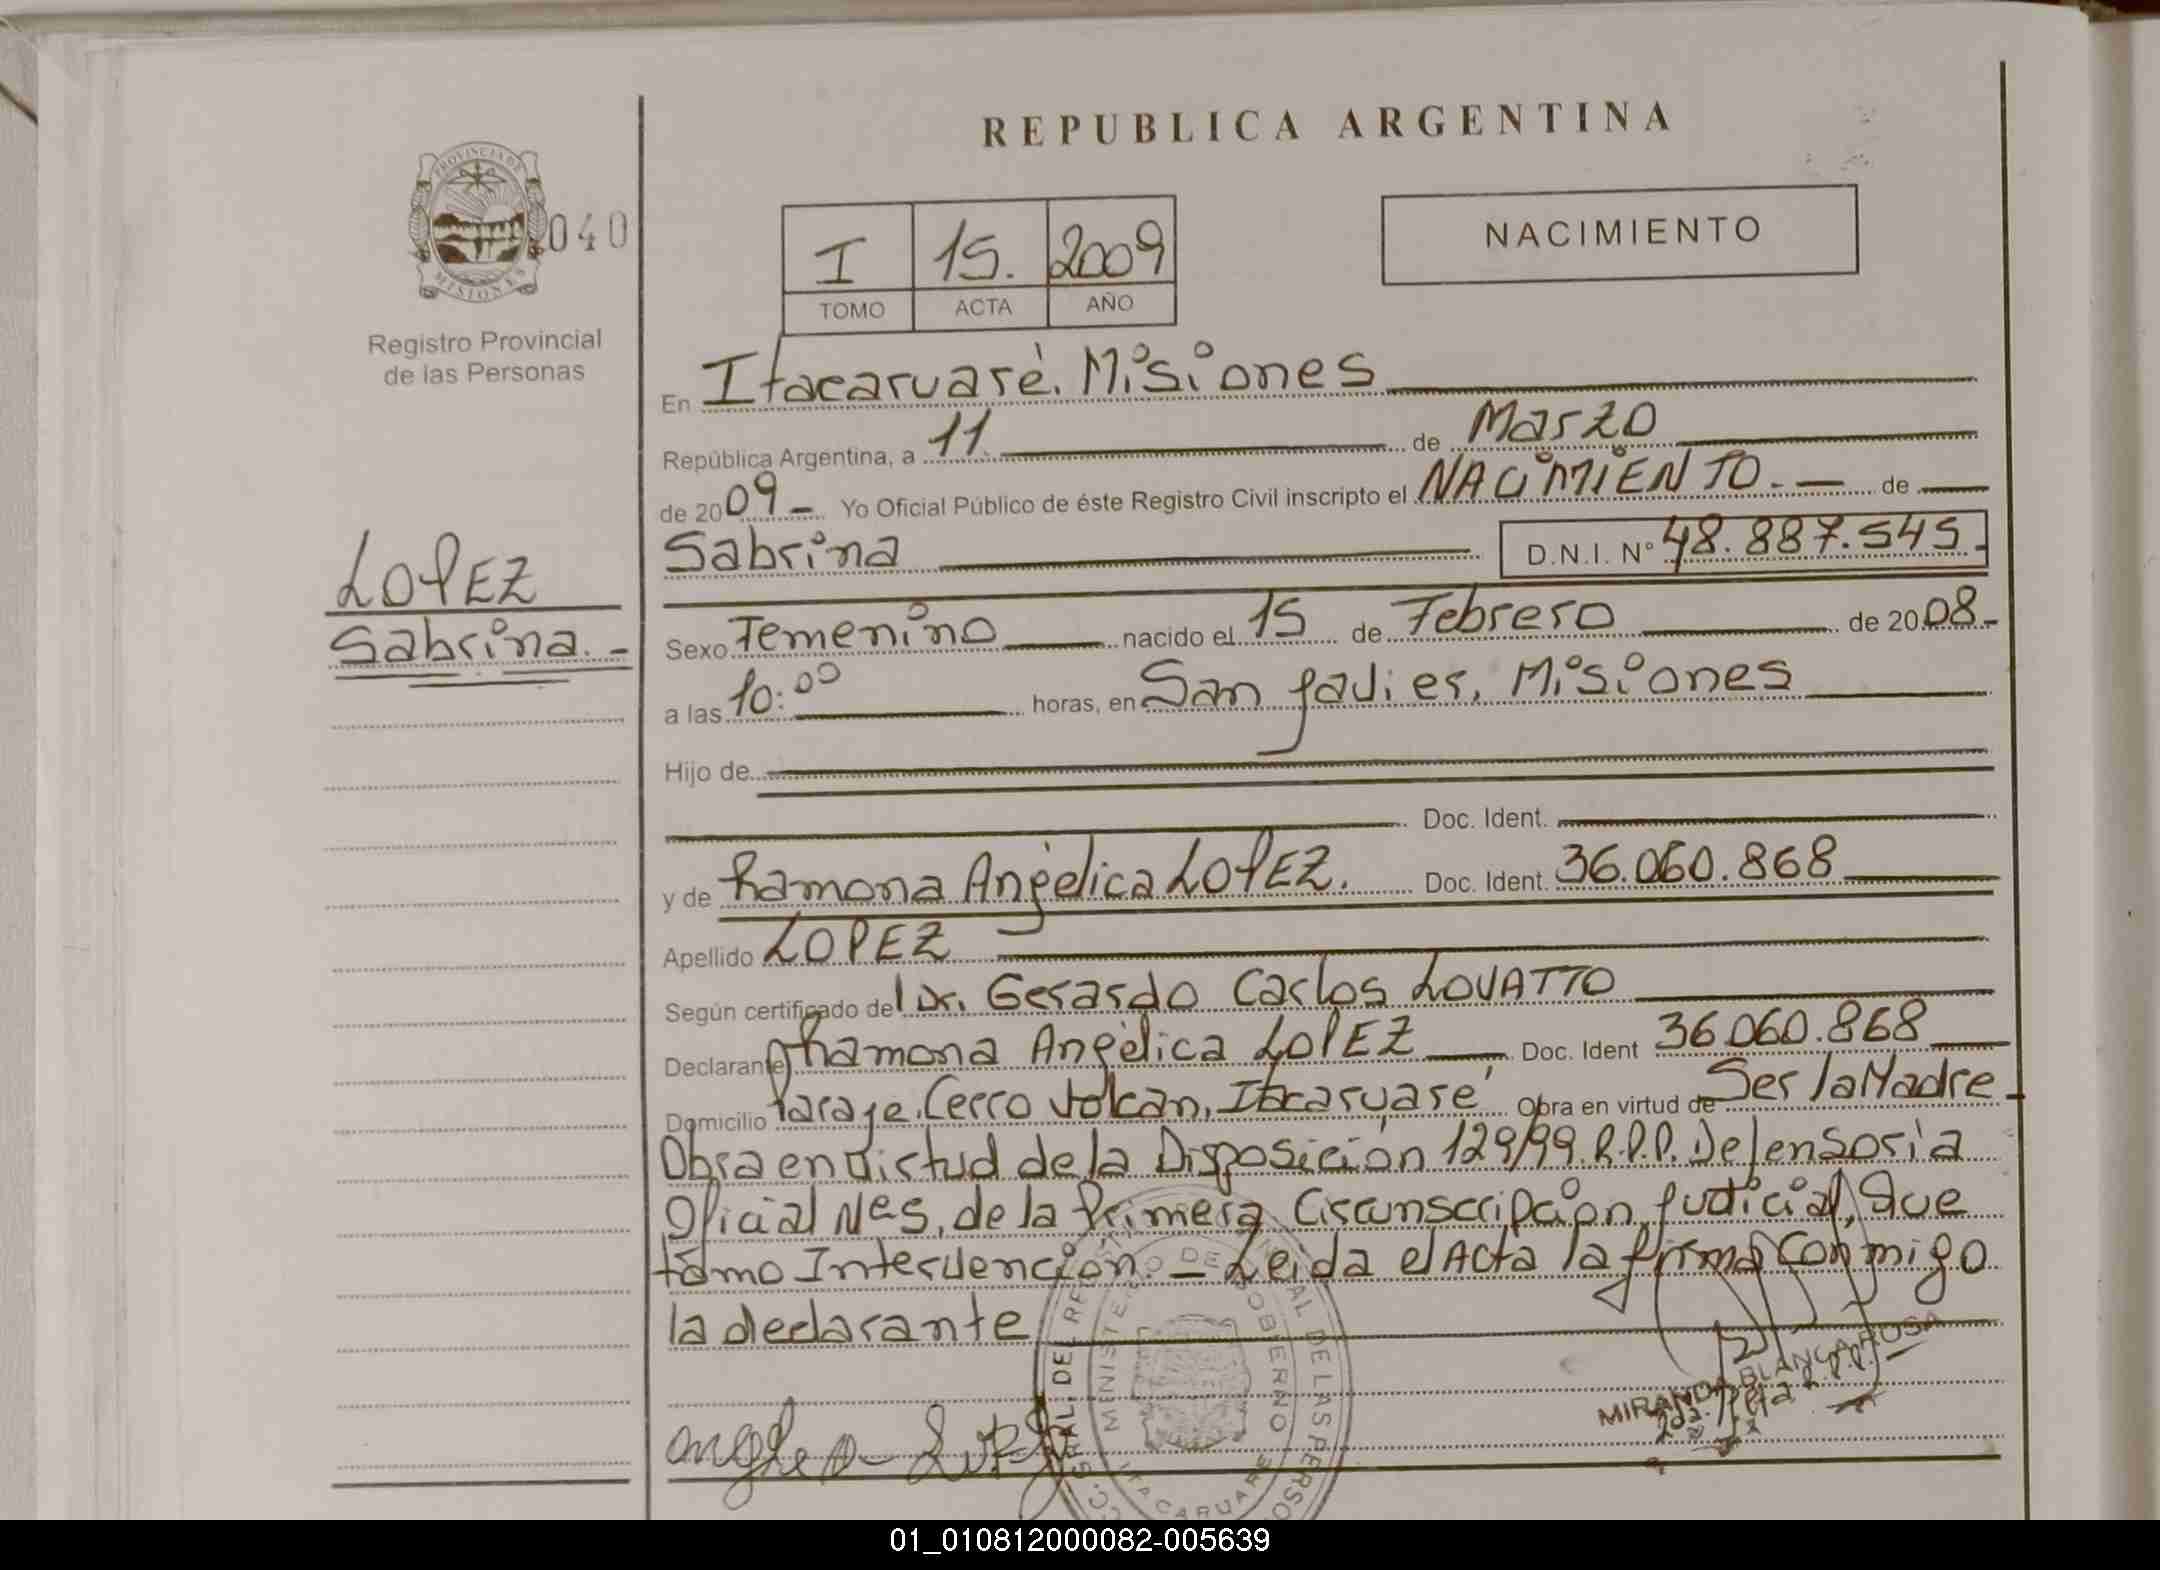 REPUBLICA ARGENTINA
PROVINCIA DE
MISIONES
040
Registro Provincial
de las Personas
I 15. 2009
TOMO ACTA AÑO
NACIMIENTO
LOPEZ
Sabrina.-
En Itacaruaré. Misiones
República Argentina, a 11 de Marzo
de 2009- Yo Oficial Público de éste Registro Civil inscripto el NACIMIENTO.- de
Sabrina D.N.I. N° 48.887.545-
Sexo Femenino nacido el 15 de Febrero de 2008-
a las 10:00 horas, en San Javier, Misiones
Hijo de
Doc. Ident.
y de Ramona Angélica LOPEZ. Doc. Ident. 36.060.868
Apellido LOPEZ
Según certificado del Dr. Gerardo Carlos LOVATTO
Declarante Ramona Angélica LOPEZ Doc. Ident 36.060.868
Domicilio Paraje. Cerro Volcan, Itacaruaré Obra en virtud de Ser la Madre-
Obra en virtud de la Disposición 129/99. R.P.P. Defensoria
Oficial de la Primera Circunscripción Judicial, que
tomo Intervención.- Leida el Acta la firma conmigo
la declarante
MINISTERIO DE GOBIERNO
ITACARUARE
MIRANDA BLANCA ROSA
01_010812000082-005639